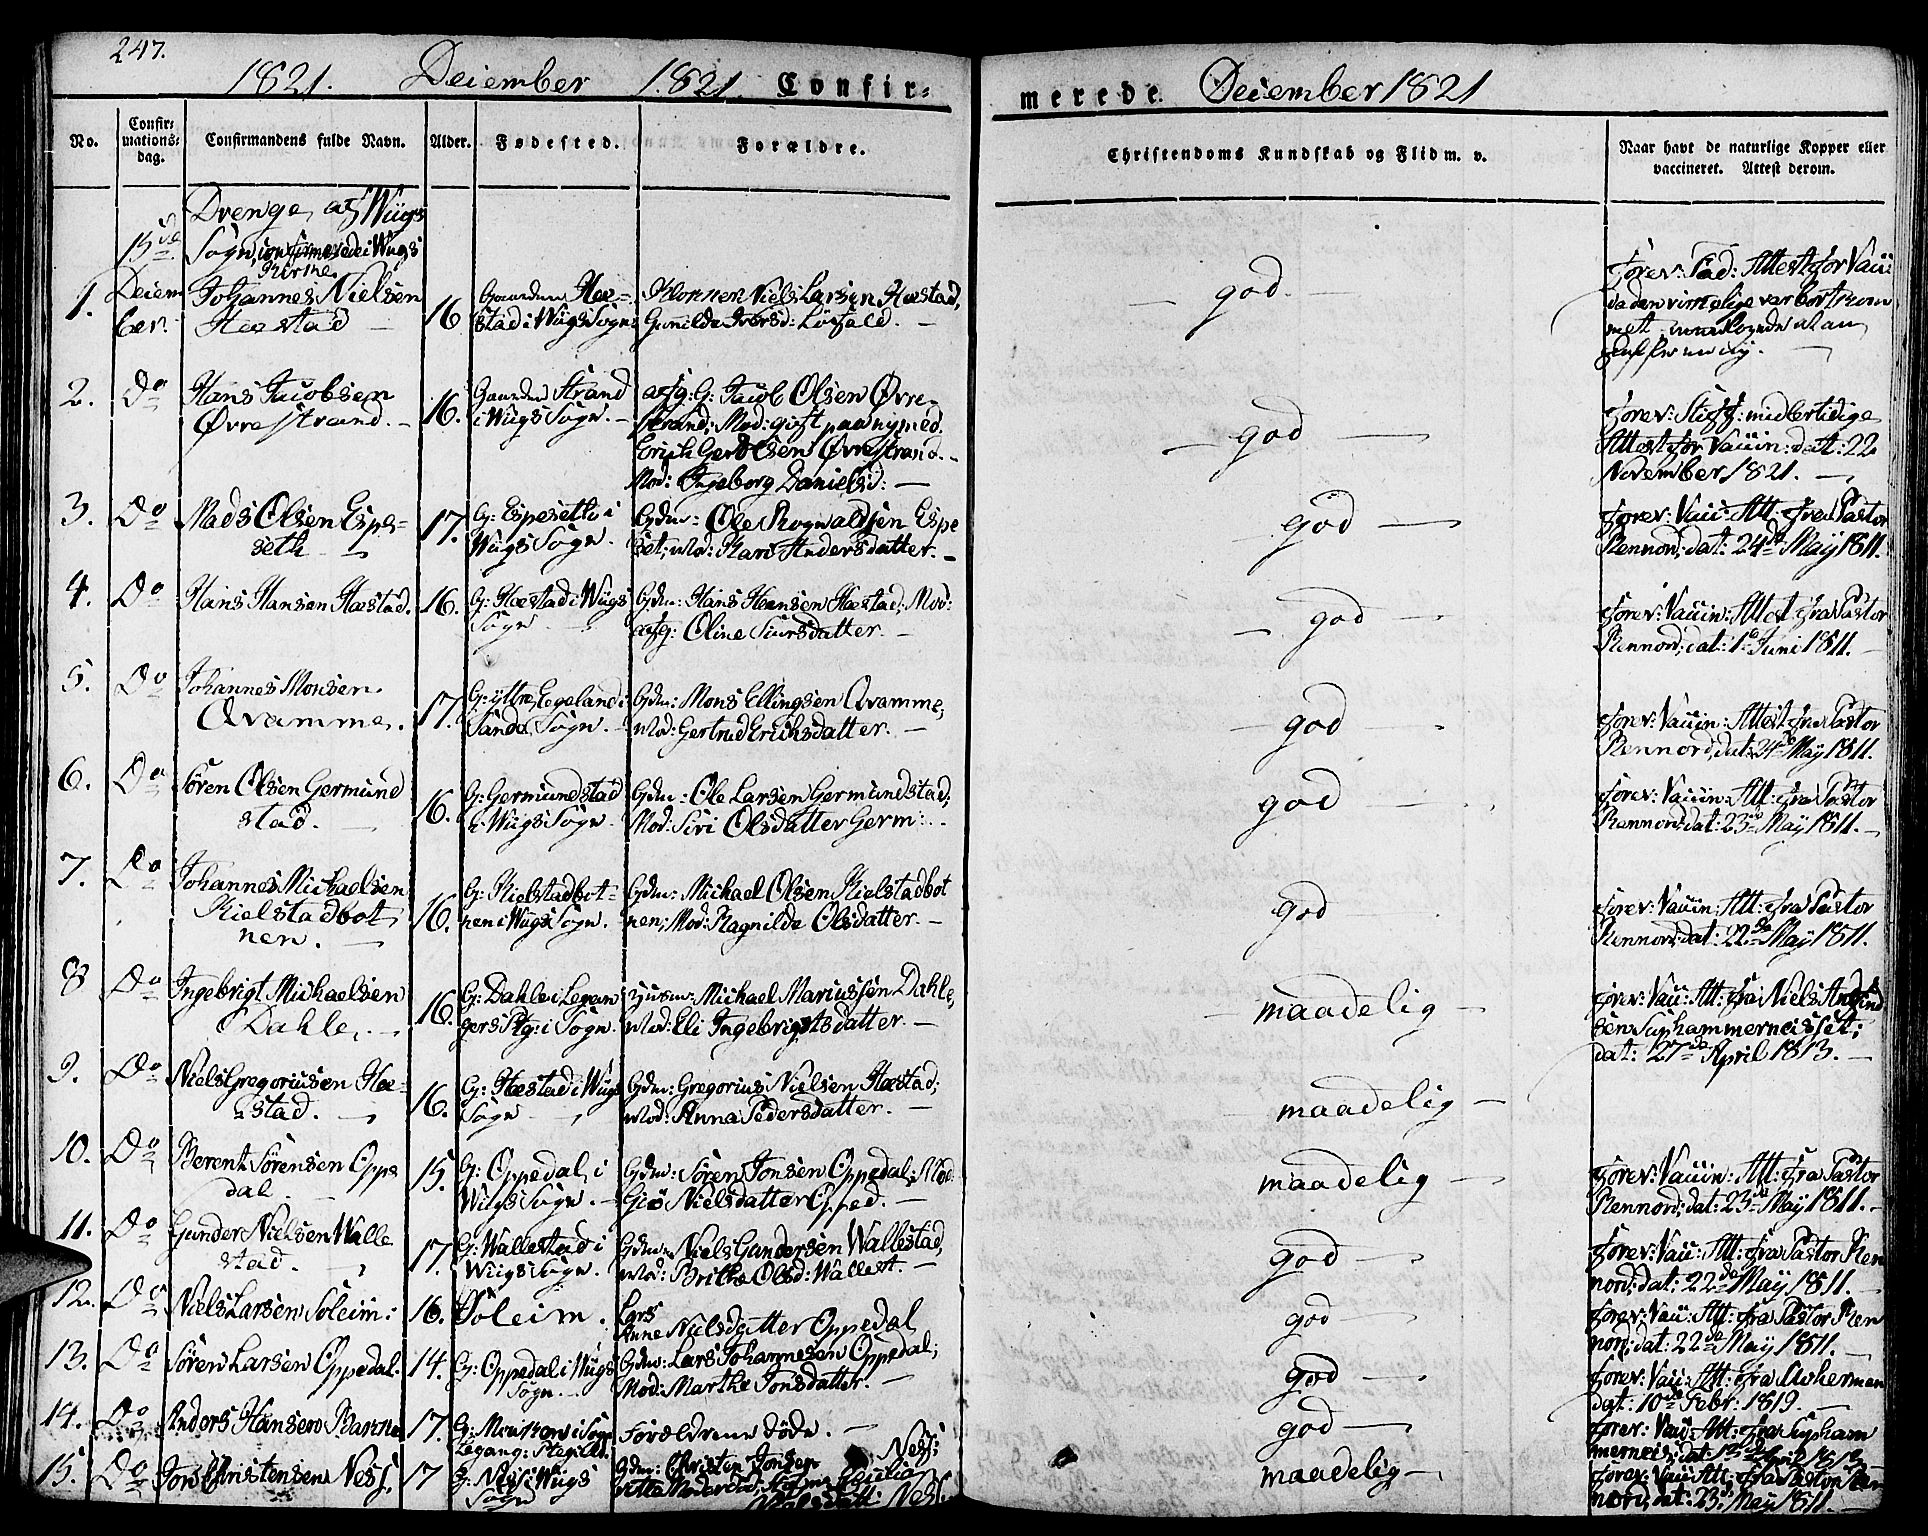 247.
1821. December 1821. Confir=
merede. December 1821
No.
Confir=
mations=
dag.
Confirmandens fulde Navn.
Alder.
Fødested.
Forældre.
Christendoms Kundskab og Flid m. v.
Naar havt de naturlige Kopper eller
vaccineret. Attest derom.
Drenge af Wügs
Sogn, confirmerede i Wügs
Kirke
1.
Decem
ber.
Johannes Nielsen
Hæstad
16
Gaarden Hæ=
stad i Wügs Sogn
Niels Larsen Hæstad,
Gunnilda Iversd:
god.
Forev: Attest for Vacc:
2.
Do
Hans Jacobsen
Øvrestrand.
16.
Gaarden Strand
i Wügs Sogn.
afg: G: Jacob Olsen Øvre
strand; Mod: gift paa ny med
Erich Olsen Øvrestrand.
Mod: Ingeborg Danielsd:
god
Forev: Stift: midlertidige
Attest for Vaccin: dat: 22
November 1821.
3.
Do
Mads Olsen Espe=
seth
17.
G: Espeseth i
Wügs Sogn.
Gdm: Ole Rognaldsen Espe
set, Mod: Kari Andersdatter.
god
Forev: Vacc: Att: fra Pastor
Rennord, dat: 24de May 1811.
4.
Do
Hans Hansen Hæstad.
16.
G: Hæstad i Wügs
Sogn
Gdm: Hans Hansen Hæstad; Mod:
afg: Oline Siursdatter.
god
Forev: Vaccin: Attest fra Pastor
Rennord, dat: 1ste Juni 1811.
5.
Do
Johannes Monsen
Qvamme.
17.
G: yttre Egeland i
Sande Sogn.
Gdm: Mons Ellingsen Qvamme;
Mod: Gertrud Erichsdatter.
god
Forev: Vaccin: Attest fra Pastor
Rennord, dat: 24de May 1811.
6.
Do
Sören Olsen Germund
stad.
16.
G: Germundstad
i Wügs Sogn.
Gdm: Ole Larsen Germundstad;
Mod: Siri Olsdatter Germ:
god
Forev: Vaccin: Att: fra Pastor
Rennord, dat: 23de May 1811.
7.
Do
Johannes Michaelsen
Kielstadbot
nen.
16.
G: Kielstadbot=
nen i Wügs Sogn.
Gdm: Michael Olsen Kielstadbot
nen; Mod: Ragnilde Olsdatter.
god
Forev: Vaccin: Att: fra Pastor
Rennord, dat: 22de May 1811.
8
Do
Ingebrigt Michaelsen
Dahle.
16.
G: Dahle i Legan
gers Ptg: i Sogn.
Husm: Michael Mariussen Dahle,
Mod: Eli Ingebrigtsdatter.
maadelig
Forev: Vacc: Att: fra Niels
dat: 27de April 1813.
9.
Do
Niels Gregoriusen Hæ=
stad.
16.
G: Hæstad i Wügs
Sogn
Gdm: Gregorius Nielsen Hæstad;
Mod: Anna Pedersdatter.
maadelig
10.
Do
Berent Sörensen Oppe
dal.
15.
G: Oppedal i
Wügs Sogn.
Gdm: Sören Jonsen Oppedal; Mod:
Giö Nielsdatter Opped.
maadelig
Forev: Vaccin: Att: fra Pastor
Rennord, dat: 23de May 1811.
11.
Do
Gunder Nielsen Walle
stad.
17.
G: Wallestad i
Wügs Sogn.
Gdm: Niels Gundersen Wallestad,
Mod: Brithe Olsd: Wallest.
god
Forev: Vacc: Att: fra Pastor Ren
nord, dat: 22de May 1811.
12.
Do
Niels Larsen Soleim:
16.
Soleim.
Lars
Anne Nielsdatter Oppedal
god
Forev: Vacc: Att: fra Pastor Ren
nord, dat: 22de May 1811.
13.
Do
Sören Larsen Oppedal.
14.
G: Oppedal i Wügs
Sogn.
Gdm: Lars Johannesen Oppedal;
Mod: Marthe Jonsdatter.
god
Forev: Vacc: Att: fra
dat: 10de Febr: 1819.
14.
Do
Anders Hansen
17.
Forældrene döde.
god
Forev: Vacc: Att: fra
15.
Do
Jon Christensen Ness.
17
G: Ness i Wügs
Sogn
Gdm: Christen Jonsen Ness;
maadelig
Forev: Vacc: Att: fra Pastor Ren
nord, dat: 23de May 1811.